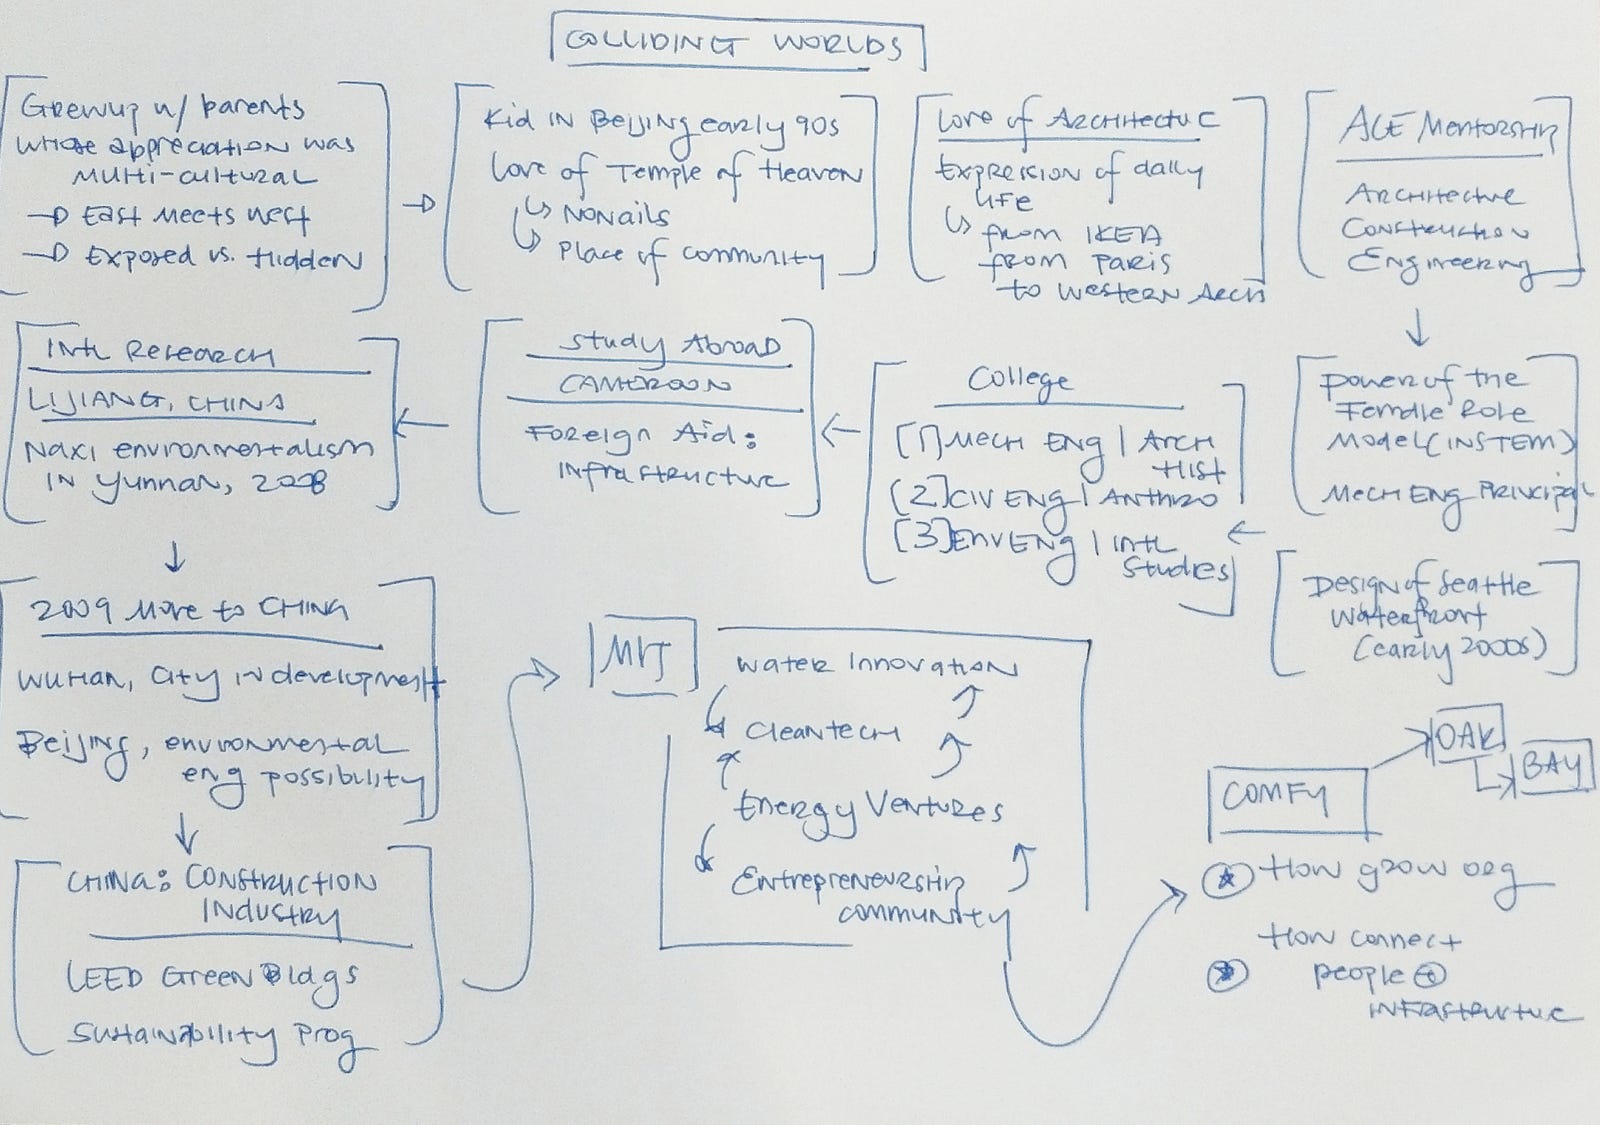 COLLIDING WORLDS
Grew up w/ parents
whose appreciation was
multi-cultural
→ East meets West
→ Exposed vs. Hidden
Kid in Beijing early 90s
Love of Temple of Heaven
↳ No Nails
↳ Place of community
Love of Architectue
Expression of daily
life
↳ from IKEA
from Paris
to Western Arch
ACE Mentorship
Architecture
Construction
Engineering
Power of the
Female Role
Model (in STEM)
Mech Eng Principal
Design of Seattle
Waterfront
(early 2000s)
College
[1] Mech Eng | Arch
Hist
[2] Civ Eng | Anthro
[3] Env Eng | Intl
Studies
Study Abroad
Cameroon
Foreign Aid:
Infrastructure
Intl Research
Lijiang, China
Naxi environmentalism
in Yunnan, 2008
2009 Move to China
Wuhan, City in development
Beijing, environmental
eng possibility
China: Construction
Industry
LEED Green Bldgs
Sustainability Prog
MIT
Water Innovation
Cleantech
Energy Ventures
Entrepreneurship
community
COMFY
OAK
BAY
How grow org
How connect
people +
infrastructue